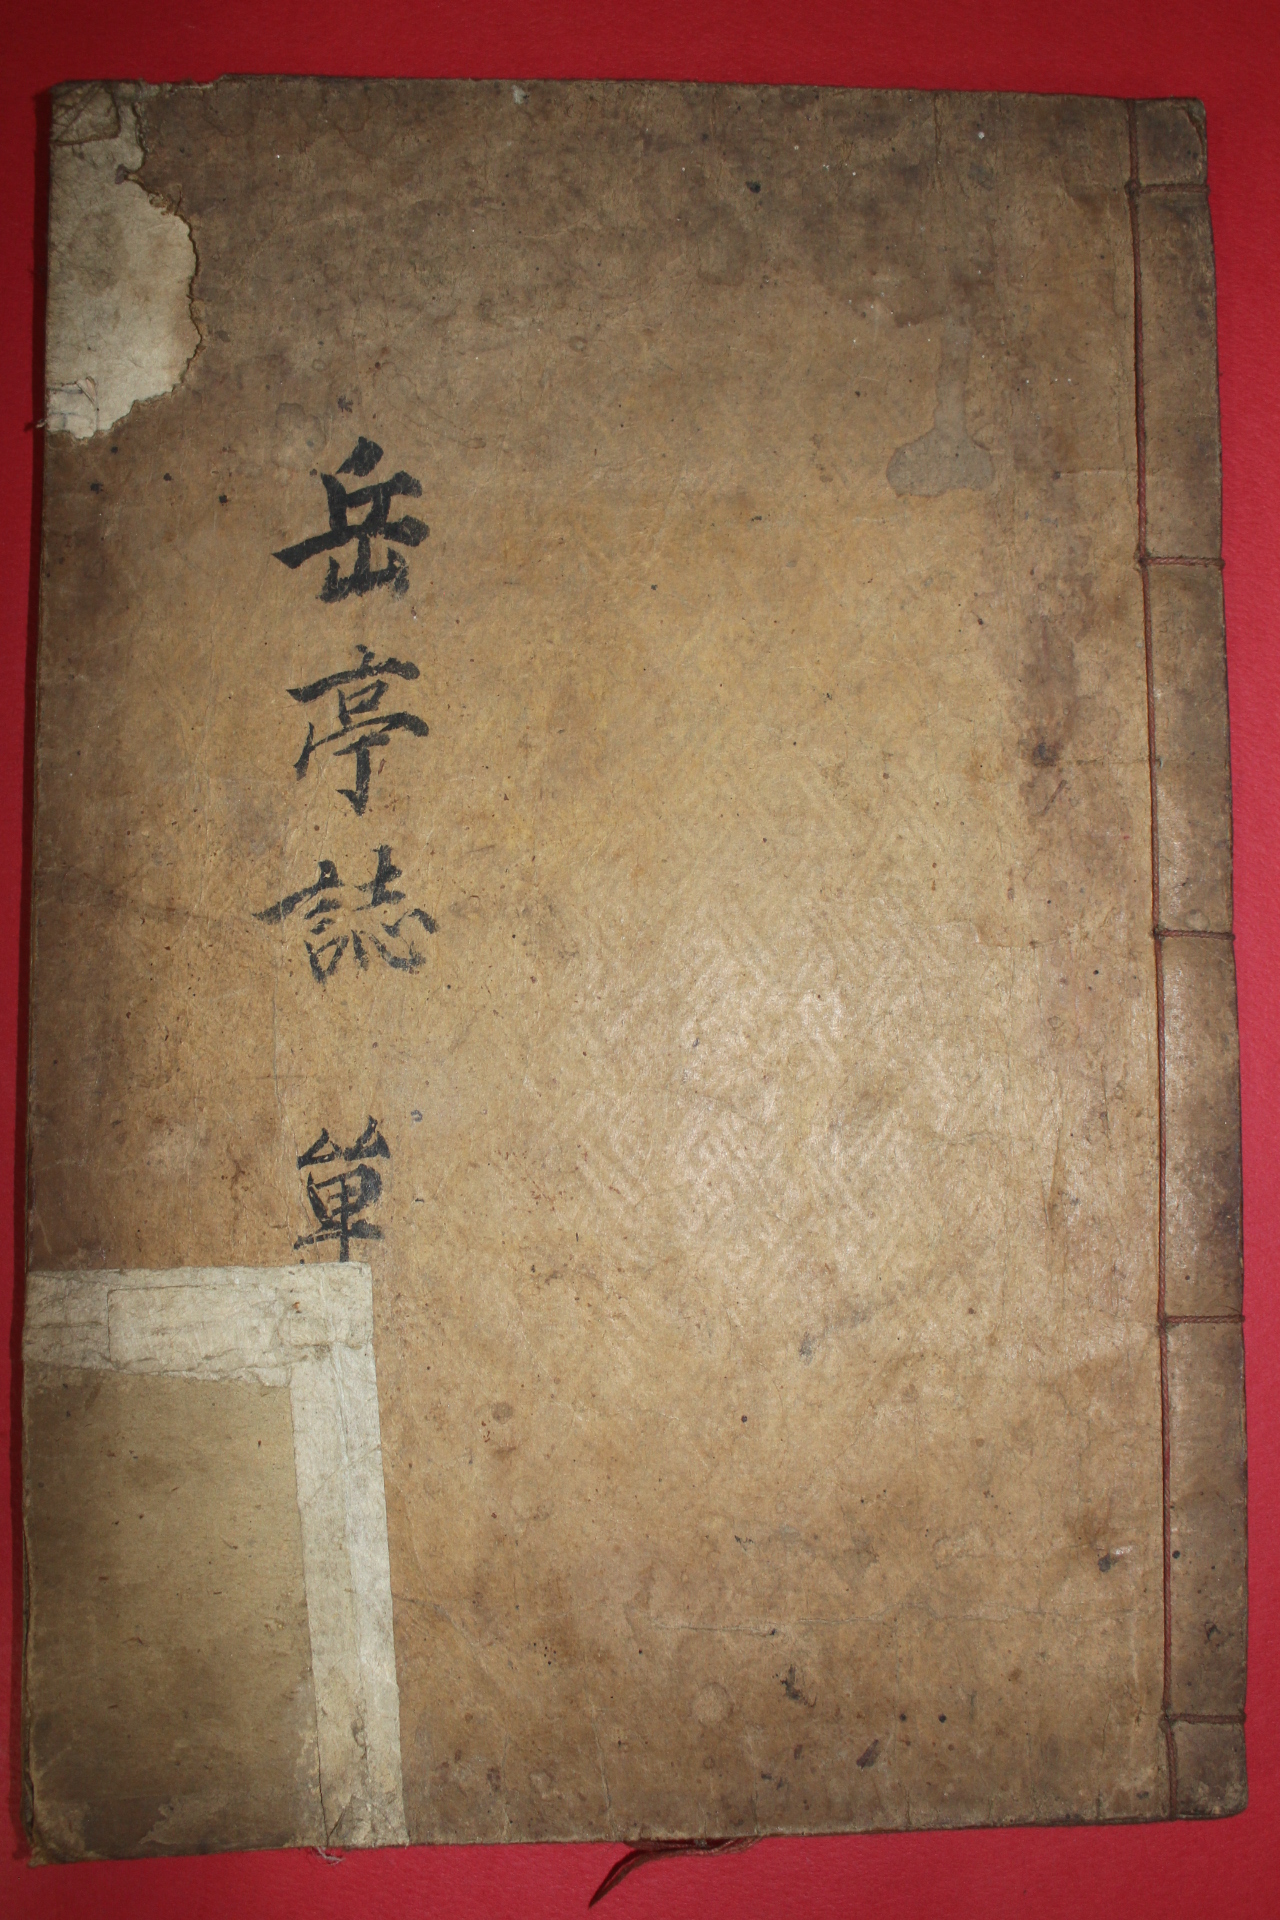 岳亭誌 單